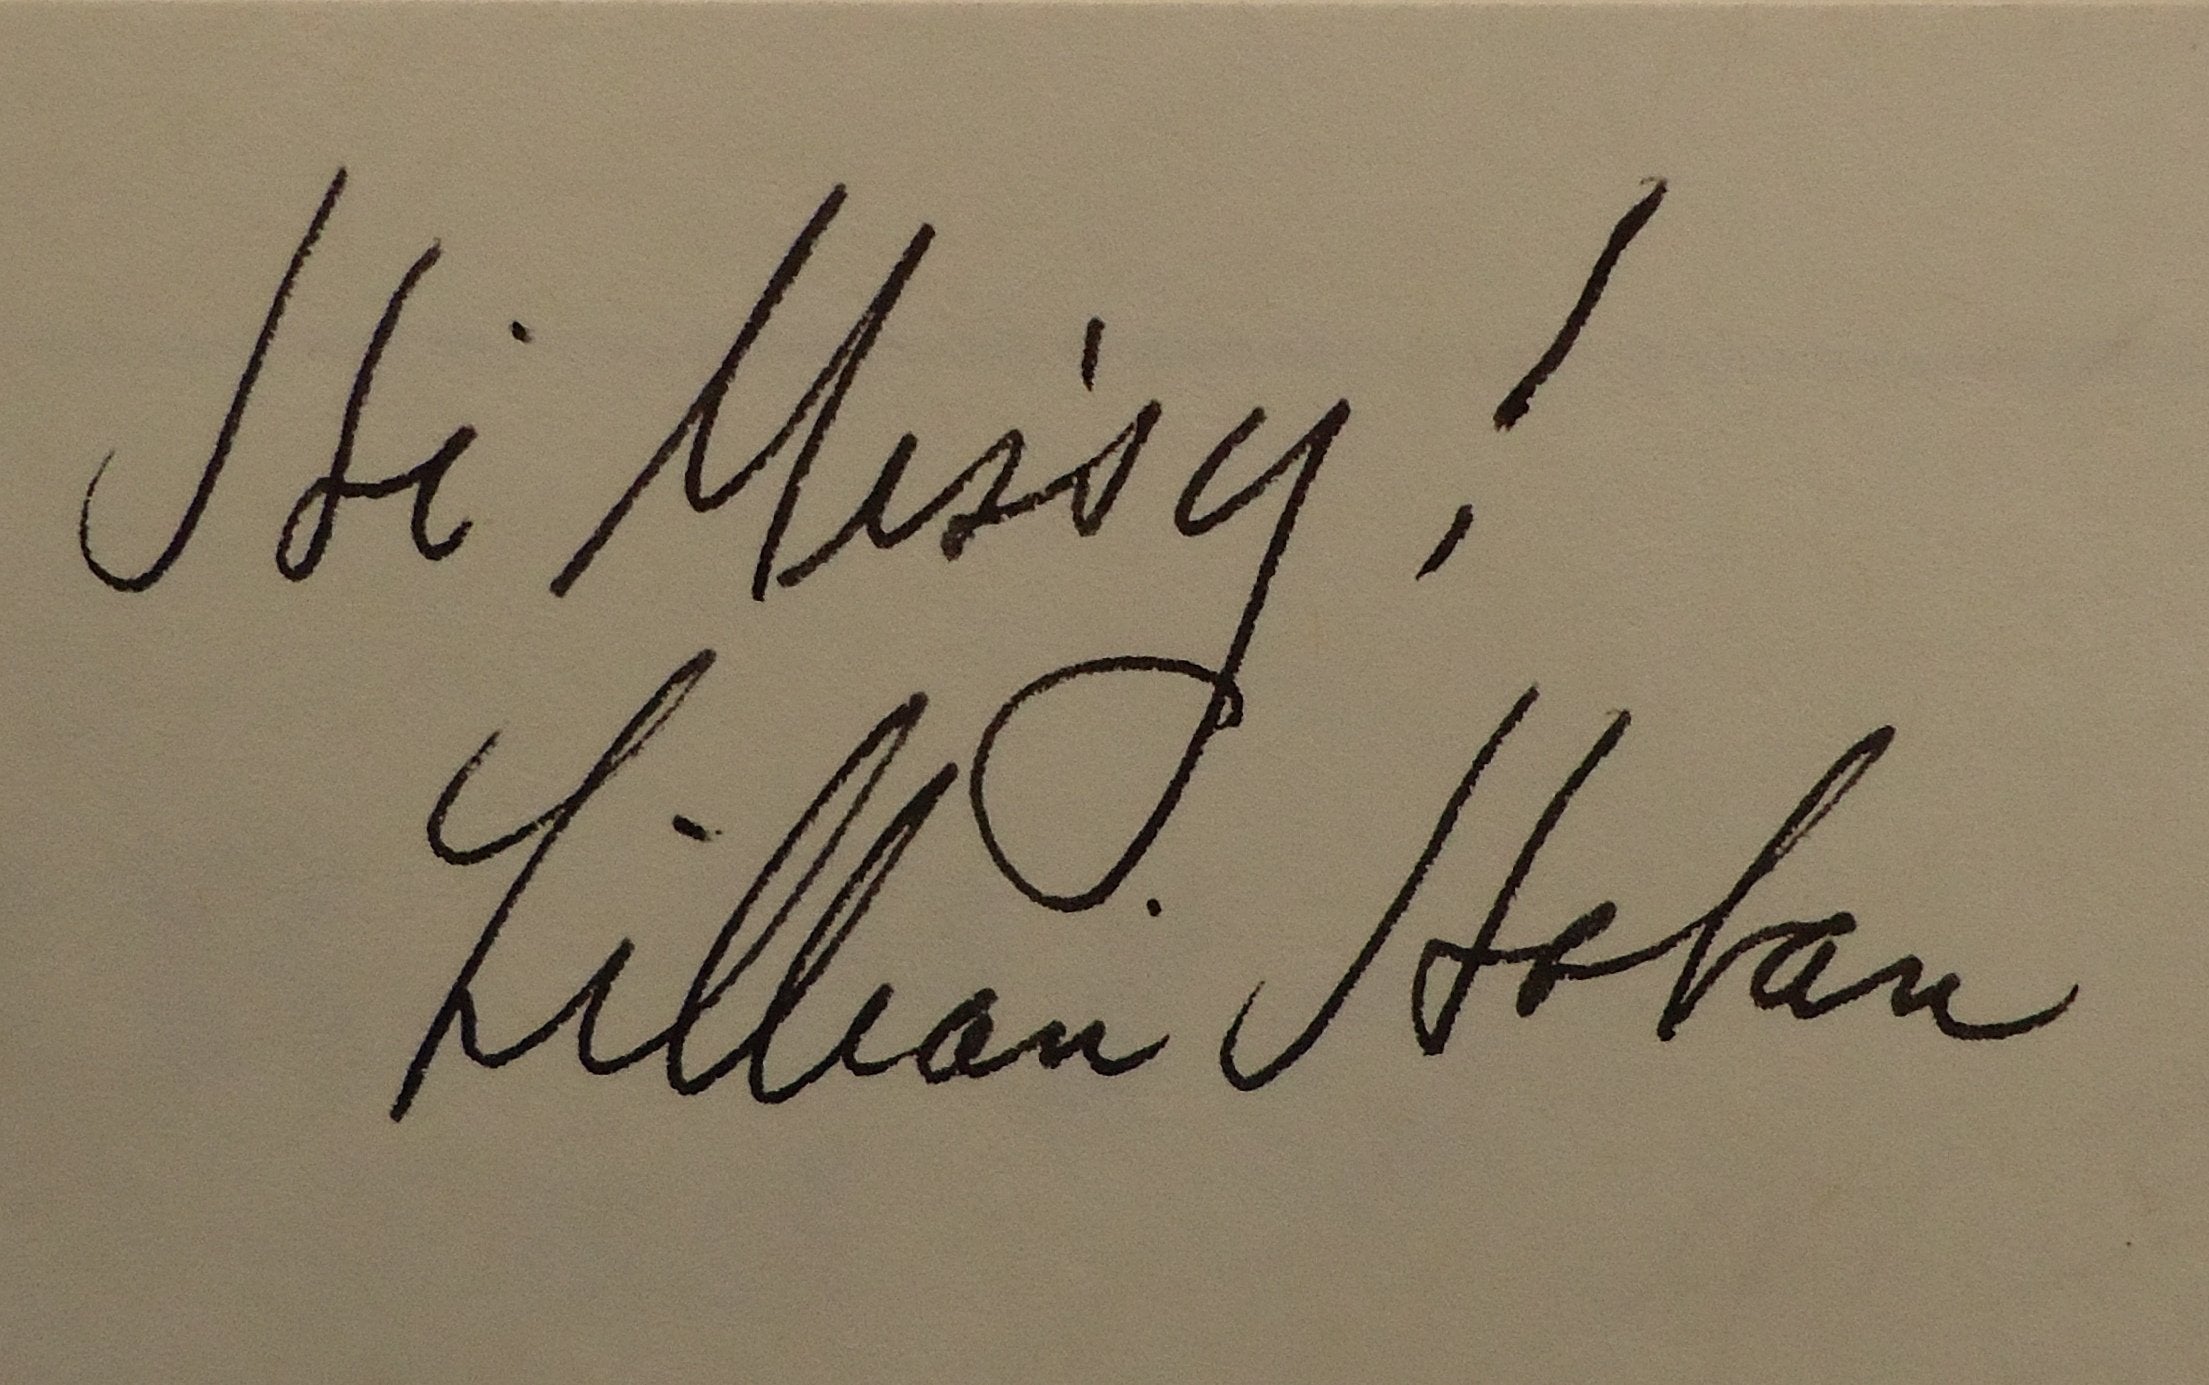 Hi Missy!
Lillian Hoban